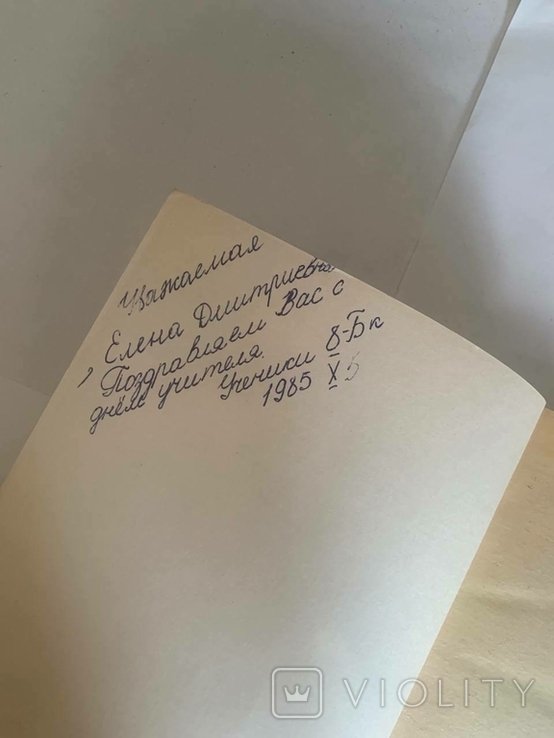 Уважаемая
Елена Дмитриевна
, Поздравляем Вас с
днём учителя.
Ученики 8-Б к
1985 X 5
VIOLITY